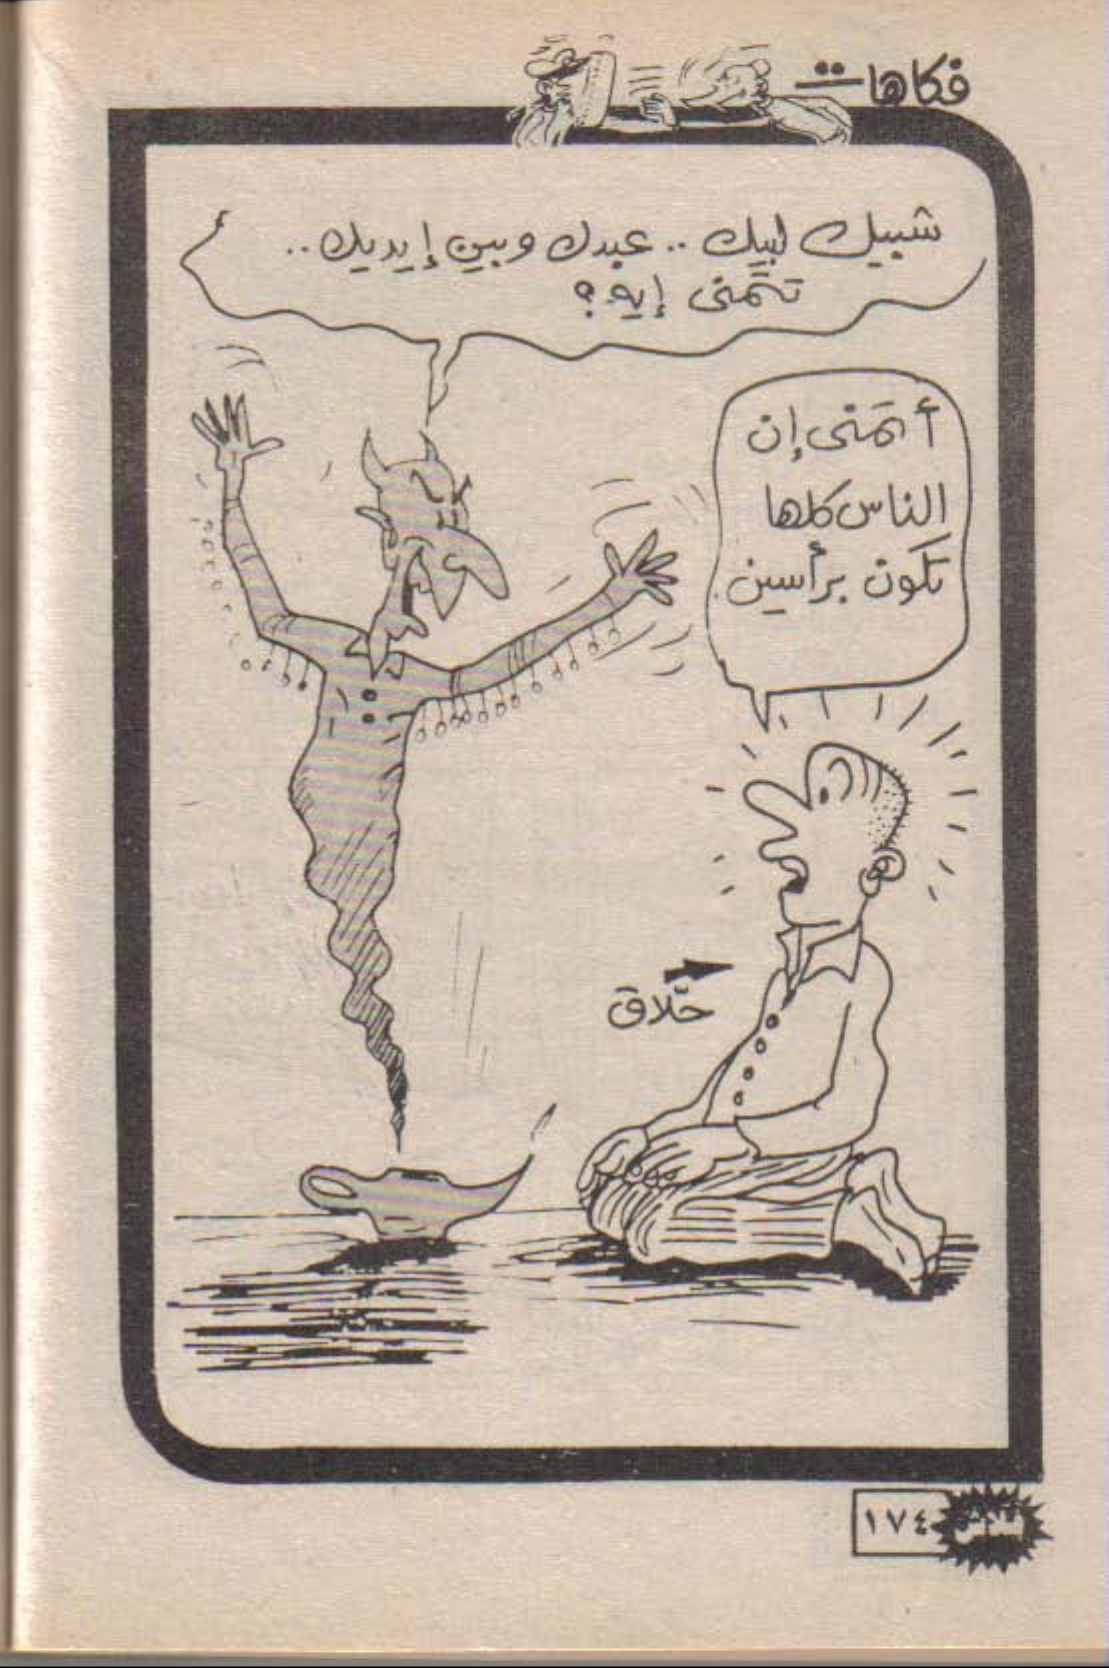 فكاهات
شبيك لبيك .. عبدك وبين إيديك ..
تتمنى إيه ؟
أتمنى إن
الناس كلها
تكون برأسين .
حلّاق
١٧٤